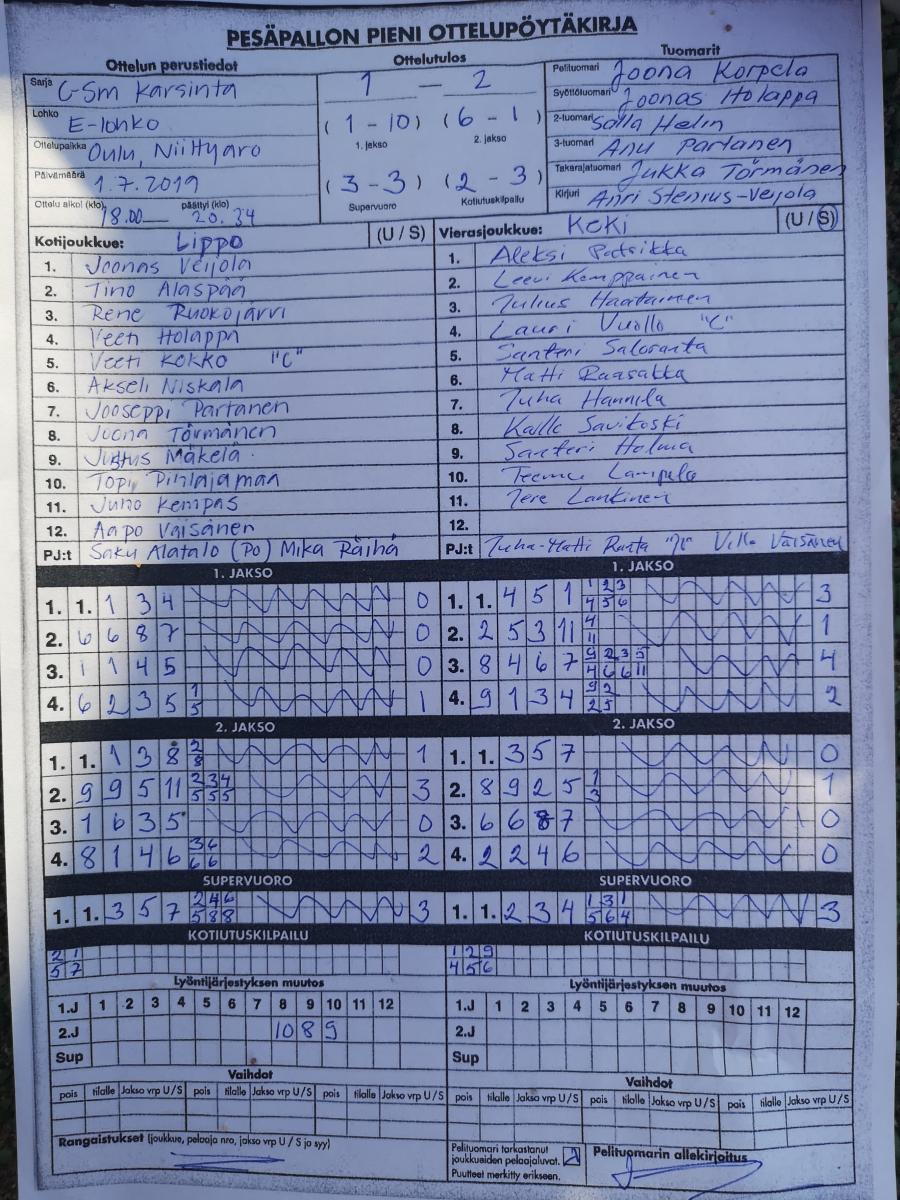 PESÄPALLON PIENI OTTELUPÖYTÄKIRJA
Ottelun perustiedot
Sarja G-Sm karsinta
Lohko E-lohko
Ottelupaikka Oulu, Niittyaro
Päivämäärä 1.7.2019
Ottelu alkoi (klo) 18.00 päättyi (klo) 20.34
Ottelutulos
1 — 2
( 1 - 10 ) ( 6 - 1 )
1. jakso 2. jakso
( 3 - 3 ) ( 2 - 3 )
Supervuoro Kotiutuskilpailu
Tuomarit
Pelituomari Joona Korpela
Syöttötuomari Joonas Holappa
2-tuomari Salla Helin
3-tuomari Anu Partanen
Takarajatuomari Jukka Törmänen
Kirjuri Anri Stenius-Veijola
Kotijoukkue: Lippo (U / S)
1. Joonas Veijola
2. Tino Alaspää
3. Rene Ruokojärvi
4. Veeti Holappa
5. Veeti Kokko "C"
6. Akseli Niskala
7. Jooseppi Partanen
8. Joona Törmänen
9. Justus Mäkelä
10. Topi Pihlajamaa
11. Juho Kempas
12. Aapo Väisänen
PJ:t Saku Alatalo (PO) Mika Räihä
Vierasjoukkue: KeKi (U / S)
1. Aleksi Patsikka
2. Leevi Kemppainen
3. Julius Haatainen
4. Lauri Vuollo "C"
5. Santeri Saloranta
6. Matti Raasakka
7. Juha Hannila
8. Kalle Savikoski
9. Santeri Holma
10. Teemu Lampela
11. Jere Lankinen
12.
PJ:t Juha-Matti Ranta Ville Väisänen
1. JAKSO
1. 1. 1 3 4 0
2. 6 6 8 7 0
3. 1 1 4 5 0
4. 6 2 3 5 1 0
5
1. JAKSO
1. 1. 4 5 1 1 2 3 3
4 5 6
2. 2 5 3 11 4 1
11
3. 8 4 6 7 9 2 3 5 4
4 6 6 11
4. 9 1 3 4 9 2 2
2 5
2. JAKSO
1. 1. 1 3 8 2 1
8
2. 9 9 5 11 2 3 4 3
5 5 5
3. 1 6 3 5 0
4. 8 1 4 6 3 6 2
6 6
2. JAKSO
1. 1. 3 5 7 0
2. 8 9 2 5 1 1
3
3. 6 6 8 7 0
4. 2 2 4 6 0
SUPERVUORO
1. 1. 3 5 7 2 4 6 3
5 8 8
SUPERVUORO
1. 1. 2 3 4 1 3 1 3
5 6 4
KOTIUTUSKILPAILU
2 1
5 7
KOTIUTUSKILPAILU
1 2 9
4 5 6
Lyöntijärjestyksen muutos
1.J 1 2 3 4 5 6 7 8 9 10 11 12
2.J 10 8 9
Sup
Lyöntijärjestyksen muutos
1.J 1 2 3 4 5 6 7 8 9 10 11 12
2.J
Sup
Vaihdot
pois tilalle Jakso vrp U / S pois tilalle Jakso vrp U / S pois tilalle Jakso vrp U / S
Vaihdot
pois tilalle Jakso vrp U / S pois tilalle Jakso vrp U / S pois tilalle Jakso vrp U / S
Rangaistukset (joukkue, pelaaja nro, jakso vrp U / S ja syy)
Pelituomari tarkastanut
joukkueiden pelaajaluvat.
Puutteet merkitty erikseen.
Pelituomarin allekirjoitus